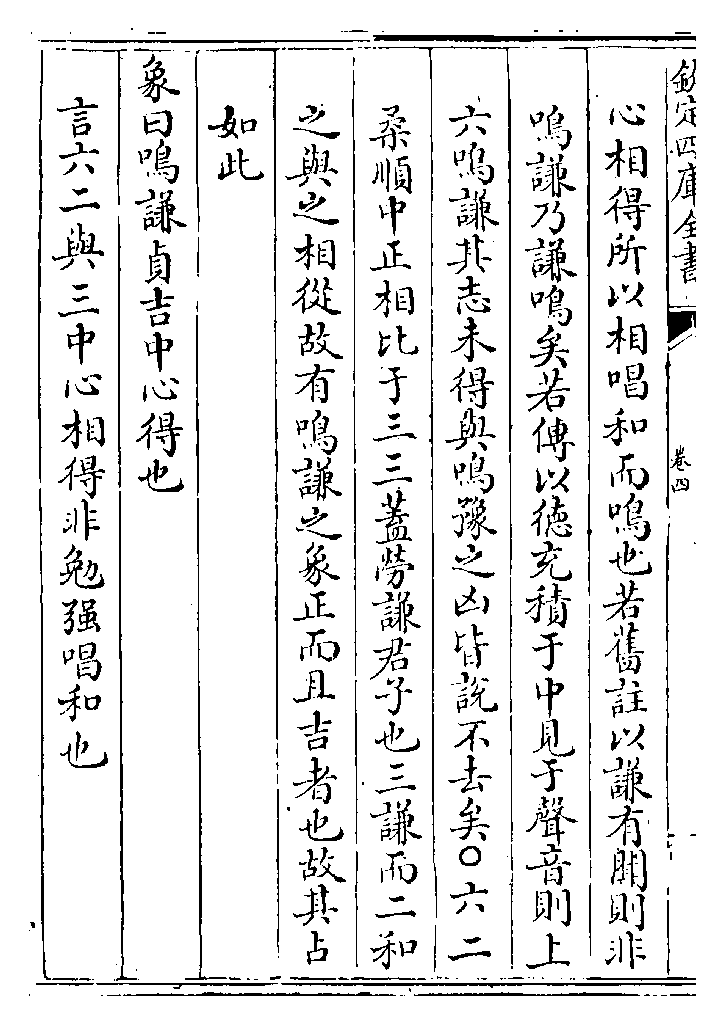 欽定四庫全書
卷四
心相得所以相唱和而鳴也若舊註以謙有聞則非
鳴謙乃謙鳴矣若傳以德充積于中見于聲音則上
六鳴謙其志未得與鳴豫之凶皆說不去矣○六二
柔順中正相比于三三蓋勞謙君子也三謙而二和
之與之相從故有鳴謙之象正而且吉者也故其占
如此
象曰鳴謙貞吉中心得也
言六二與三中心相得非勉强唱和也